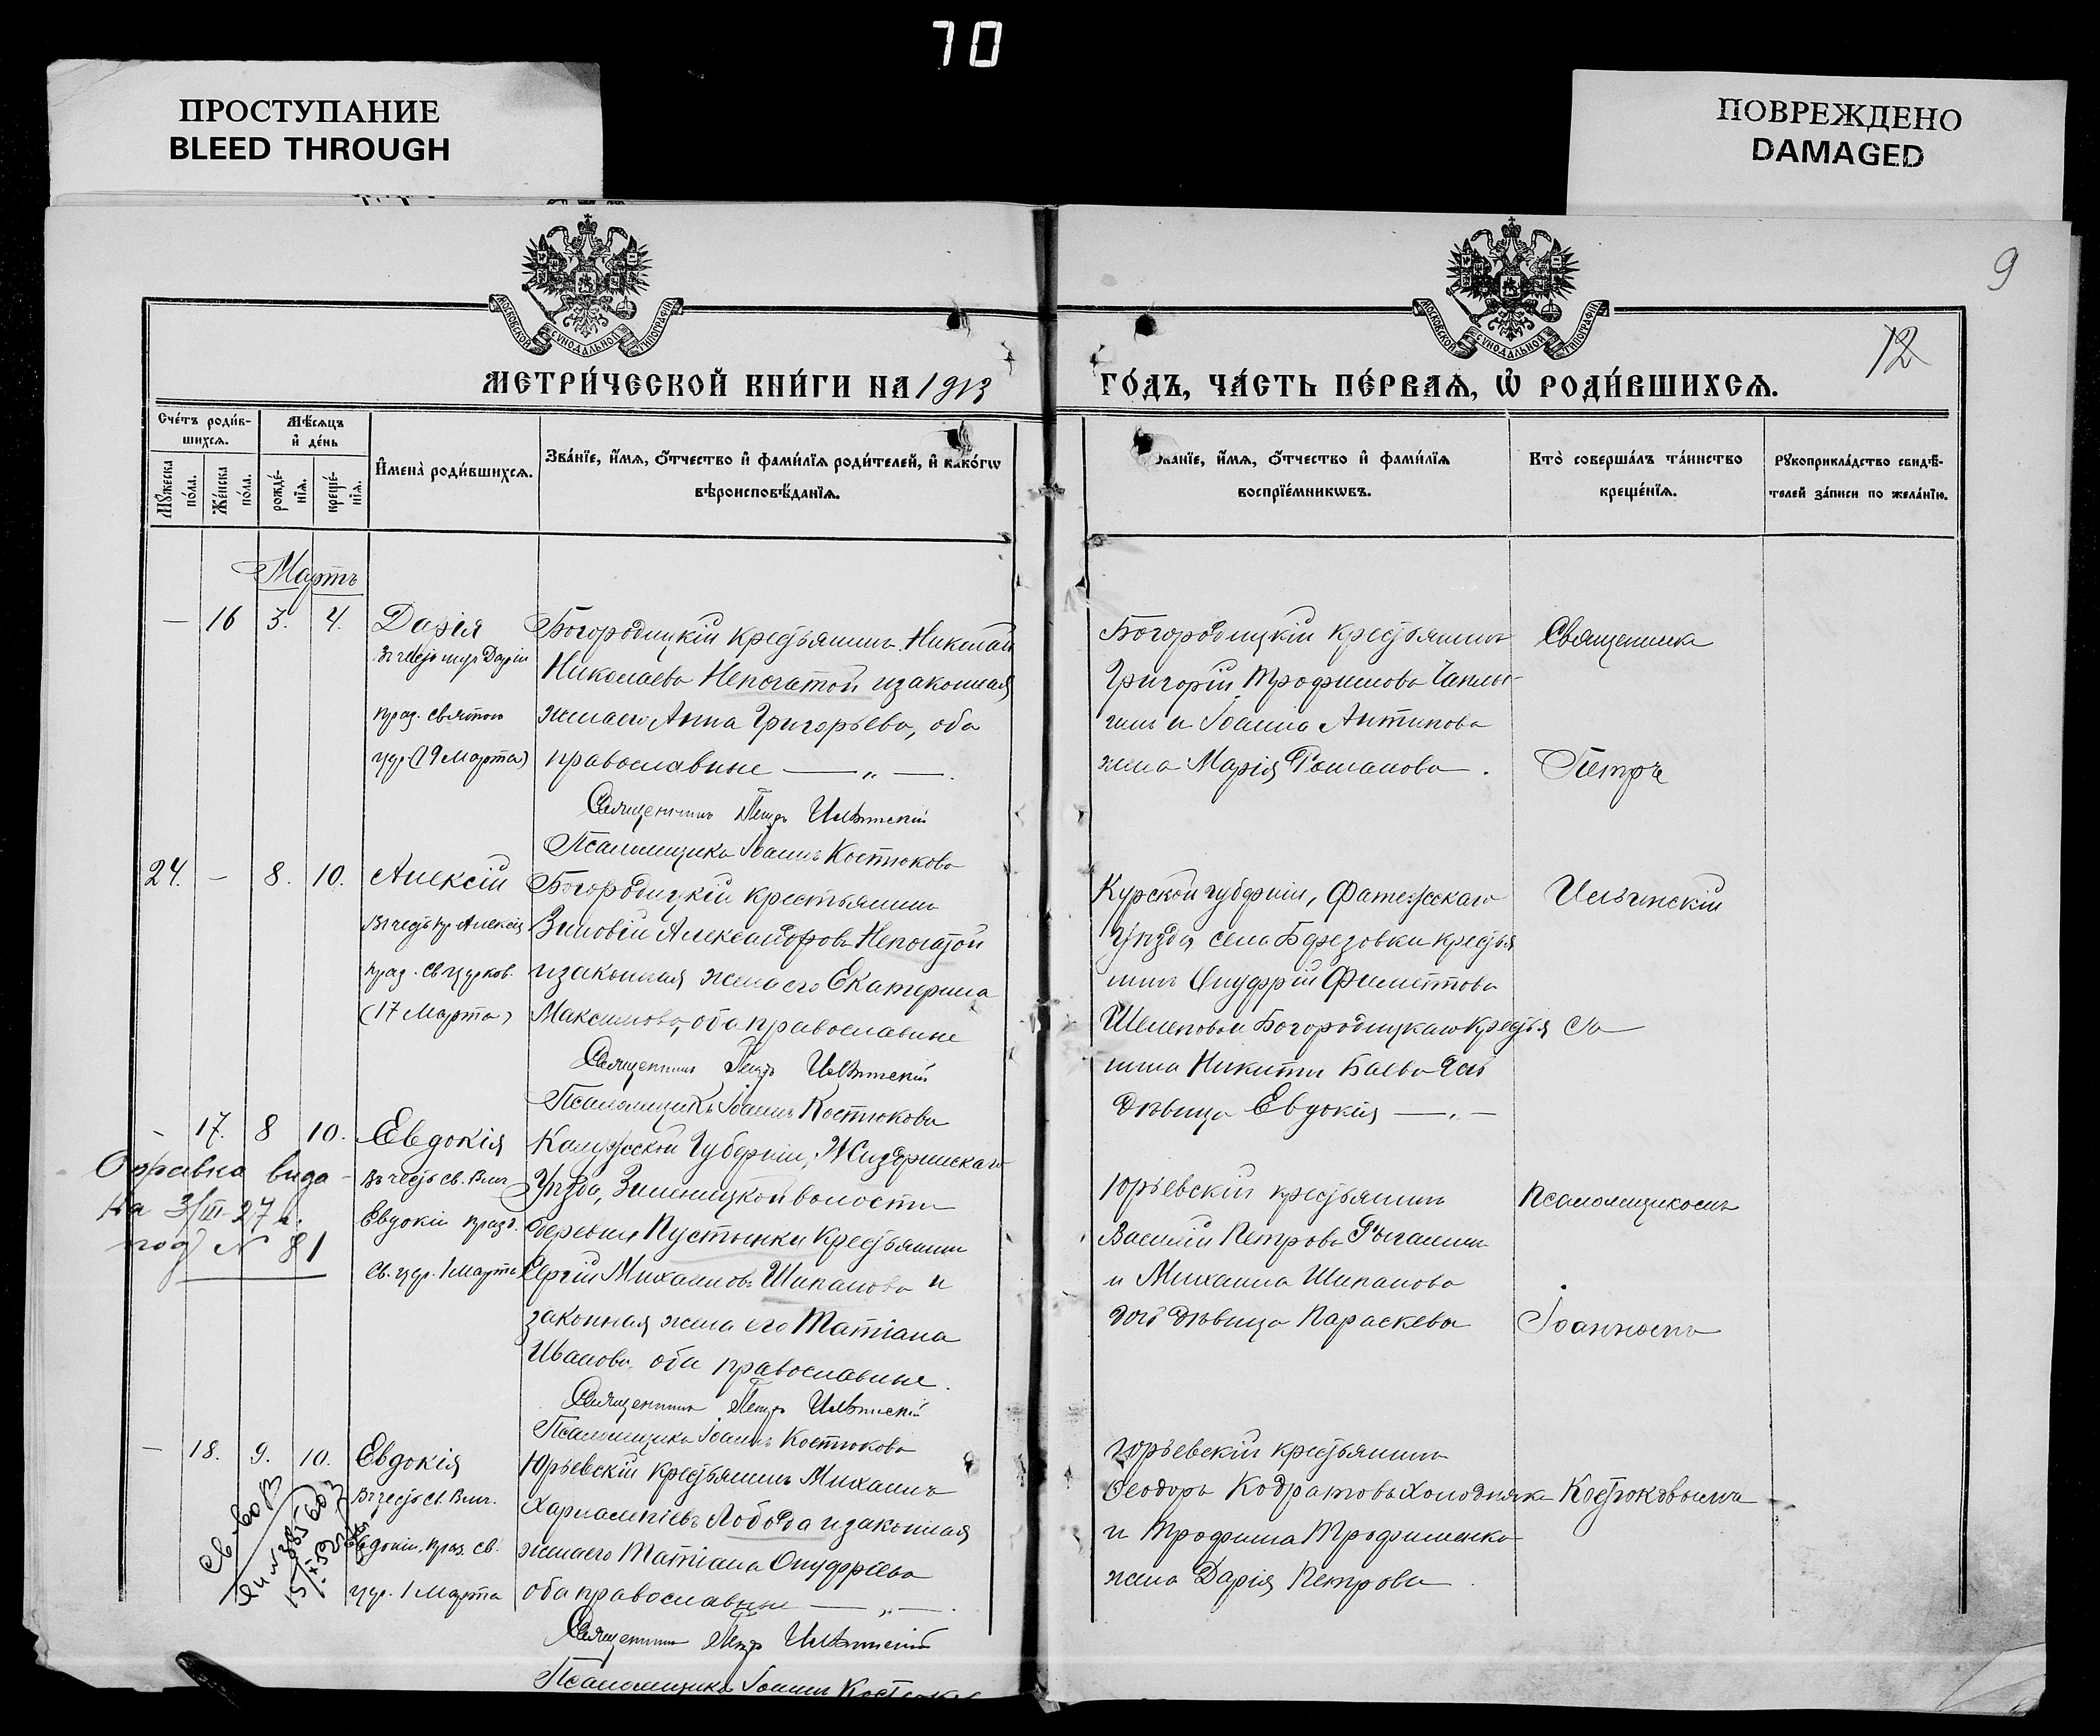 70
ПРОСТУПАНИЕ
BLEED THROUGH
ПОВРЕЖДЕНО
DAMAGED
9
12
МОСКОВСКОЙ СѴНОДАЛЬНОЙ ТИПОГРАФІИ
МОСКОВСКОЙ СѴНОДАЛЬНОЙ ТИПОГРАФІИ
МЕТРИ́ЧЕСКОЙ КНИ́ГИ НА 1913
ГО́ДЪ, ЧА́СТЬ ПЕ́РВАѦ, Ѡ҆ РОДИ́ВШИХСѦ.
Сче́тъ роди́в-
шихсѧ.
Мѣ́сѧцъ
и҆ де́нь
Мꙋ́жеска
по́ла.
Же́нска
по́ла.
рожде́-
нїѧ.
креще́-
нїѧ.
И҆мена̀ роди́вшихсѧ.
Зва́нїе, и҆́мѧ, ѻ҆́тчество и҆ фами́лїѧ роди́телей, и҆ како́гѡ
вѣроисповѣ́данїѧ.
зва́нїе, и҆́мѧ, ѻ҆́тчество и҆ фами́лїѧ
воспрїе́мникѡвъ.
Кто̀ соверша́лъ та́инство
креще́нїѧ.
Рꙋкоприкла́дство свидѣ́-
телей за́писи по жела́нїю.
Мартъ
— 16 3. 4.
Дарія
въ честь муч. Дарiи
праз. святою
цер. (19 Марта)
Богородицкій крестьянинъ Николай
Николаевъ Непочатой и законная
жена его Анна Григорьева, оба
православные — „ —.
Священникъ Петръ Ильинскій
Псаломщикъ Іоаннъ Костюковъ
Богородицкій крестьянинъ
Григорій Трофимовъ Чаплы-
гинъ и Іоанна Антипова
жена Марія Романова.
Священникъ
Петръ
24. — 8. 10.
Алексій
Въ честь пр. Алексія
праз. св. церков.
(17 Марта)
Богородицкій крестьянинъ
Зиновій Александровъ Непочатой
и законная жена его Екатерина
Максимова, оба православные
Священникъ Петръ Ильинскій
Псаломщикъ Іоаннъ Костюковъ
Курской губерніи, Фатежскаго
Уѣзда села Березовки крестья
нинъ Онуфрій Филипповъ
Шелеповъ и Богородицкаго крестья
нина Никиты Баева дочь
дѣвица Евдокія — „ —
Ильинскій
Съ
— 17. 8 10.
Евдокія
Въ честь св. Влм.
Евдокіи празд.
св. цер. 1 Марта
Справка выда-
на 3/III-27 г.
под N 81
Калужской Губерніи, Жиздринскаго
Уѣзда, Зикѣевской волости
деревни Пустынки крестьянинъ
Сергій Михаиловъ Шипановъ и
законная жена его Татіана
Иванова, оба православные.
Священникъ Петръ Ильинскій
Псаломщикъ Іоаннъ Костюковъ
Юрьевскій крестьянинъ
Василій Петровъ Рыгалинъ
и Михаила Шипанова
дочь дѣвица Параскева
Псаломщикомъ
Іоанномъ
— 18. 9. 10.
Евдокія
Въ честь св. Влм.
Евдокіи. праз. св.
цер. 1 Марта
Св-во
Юрьевскій крестьянинъ Михаилъ
Харлампіевъ Лобода и законная
жена его Татіана Онуфріева
оба православные — „ —.
Священникъ Петръ Ильинскій
Псаломщикъ Іоаннъ Костюковъ
Юрьевскій крестьянинъ
Ѳеодоръ Кодратовъ Холоднякъ
и Трофима Трофименко
жена Дарія Петрова.
Костюковымъ